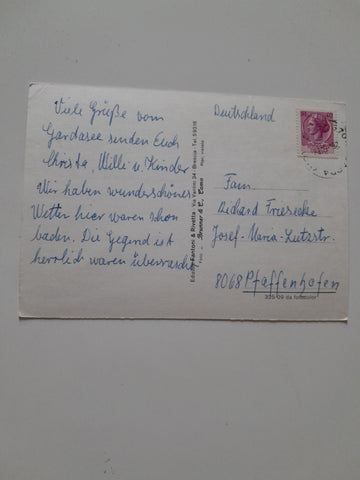 Viele Grüße vom
Gardasee senden Euch
Christa, Willi u. Kinder
Wir haben wunderschönes
Wetter hier waren schon
baden. Die Gegend ist
herrlich waren überrascht
Edizioni Fantoni & Rivetta - Via Ventini 24 - Brescia - Tel. 59035
Foto: Brunner & C., Como
Deutschland
Fam.
Richard Friesecke
Josef-Maria-Lutzstr.
8068 Pfaffenhofen
325/09 da fotocolor